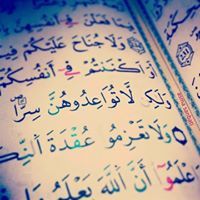 فَعَلْنَ فِىٓ
٢٣٤ وَلَا جُنَاحَ عَلَيْكُمْ فِيمَا
أَوْ أَكْنَنتُمْ فِىٓ أَنفُسِكُمْ
وَلَٰكِن لَّا تُوَاعِدُوهُنَّ سِرًّا
وَلَا تَعْزِمُوا۟ عُقْدَةَ ٱلنِّكَ
عْلَمُوٓا۟ أَنَّ ٱللَّهَ يَعْلَمُ